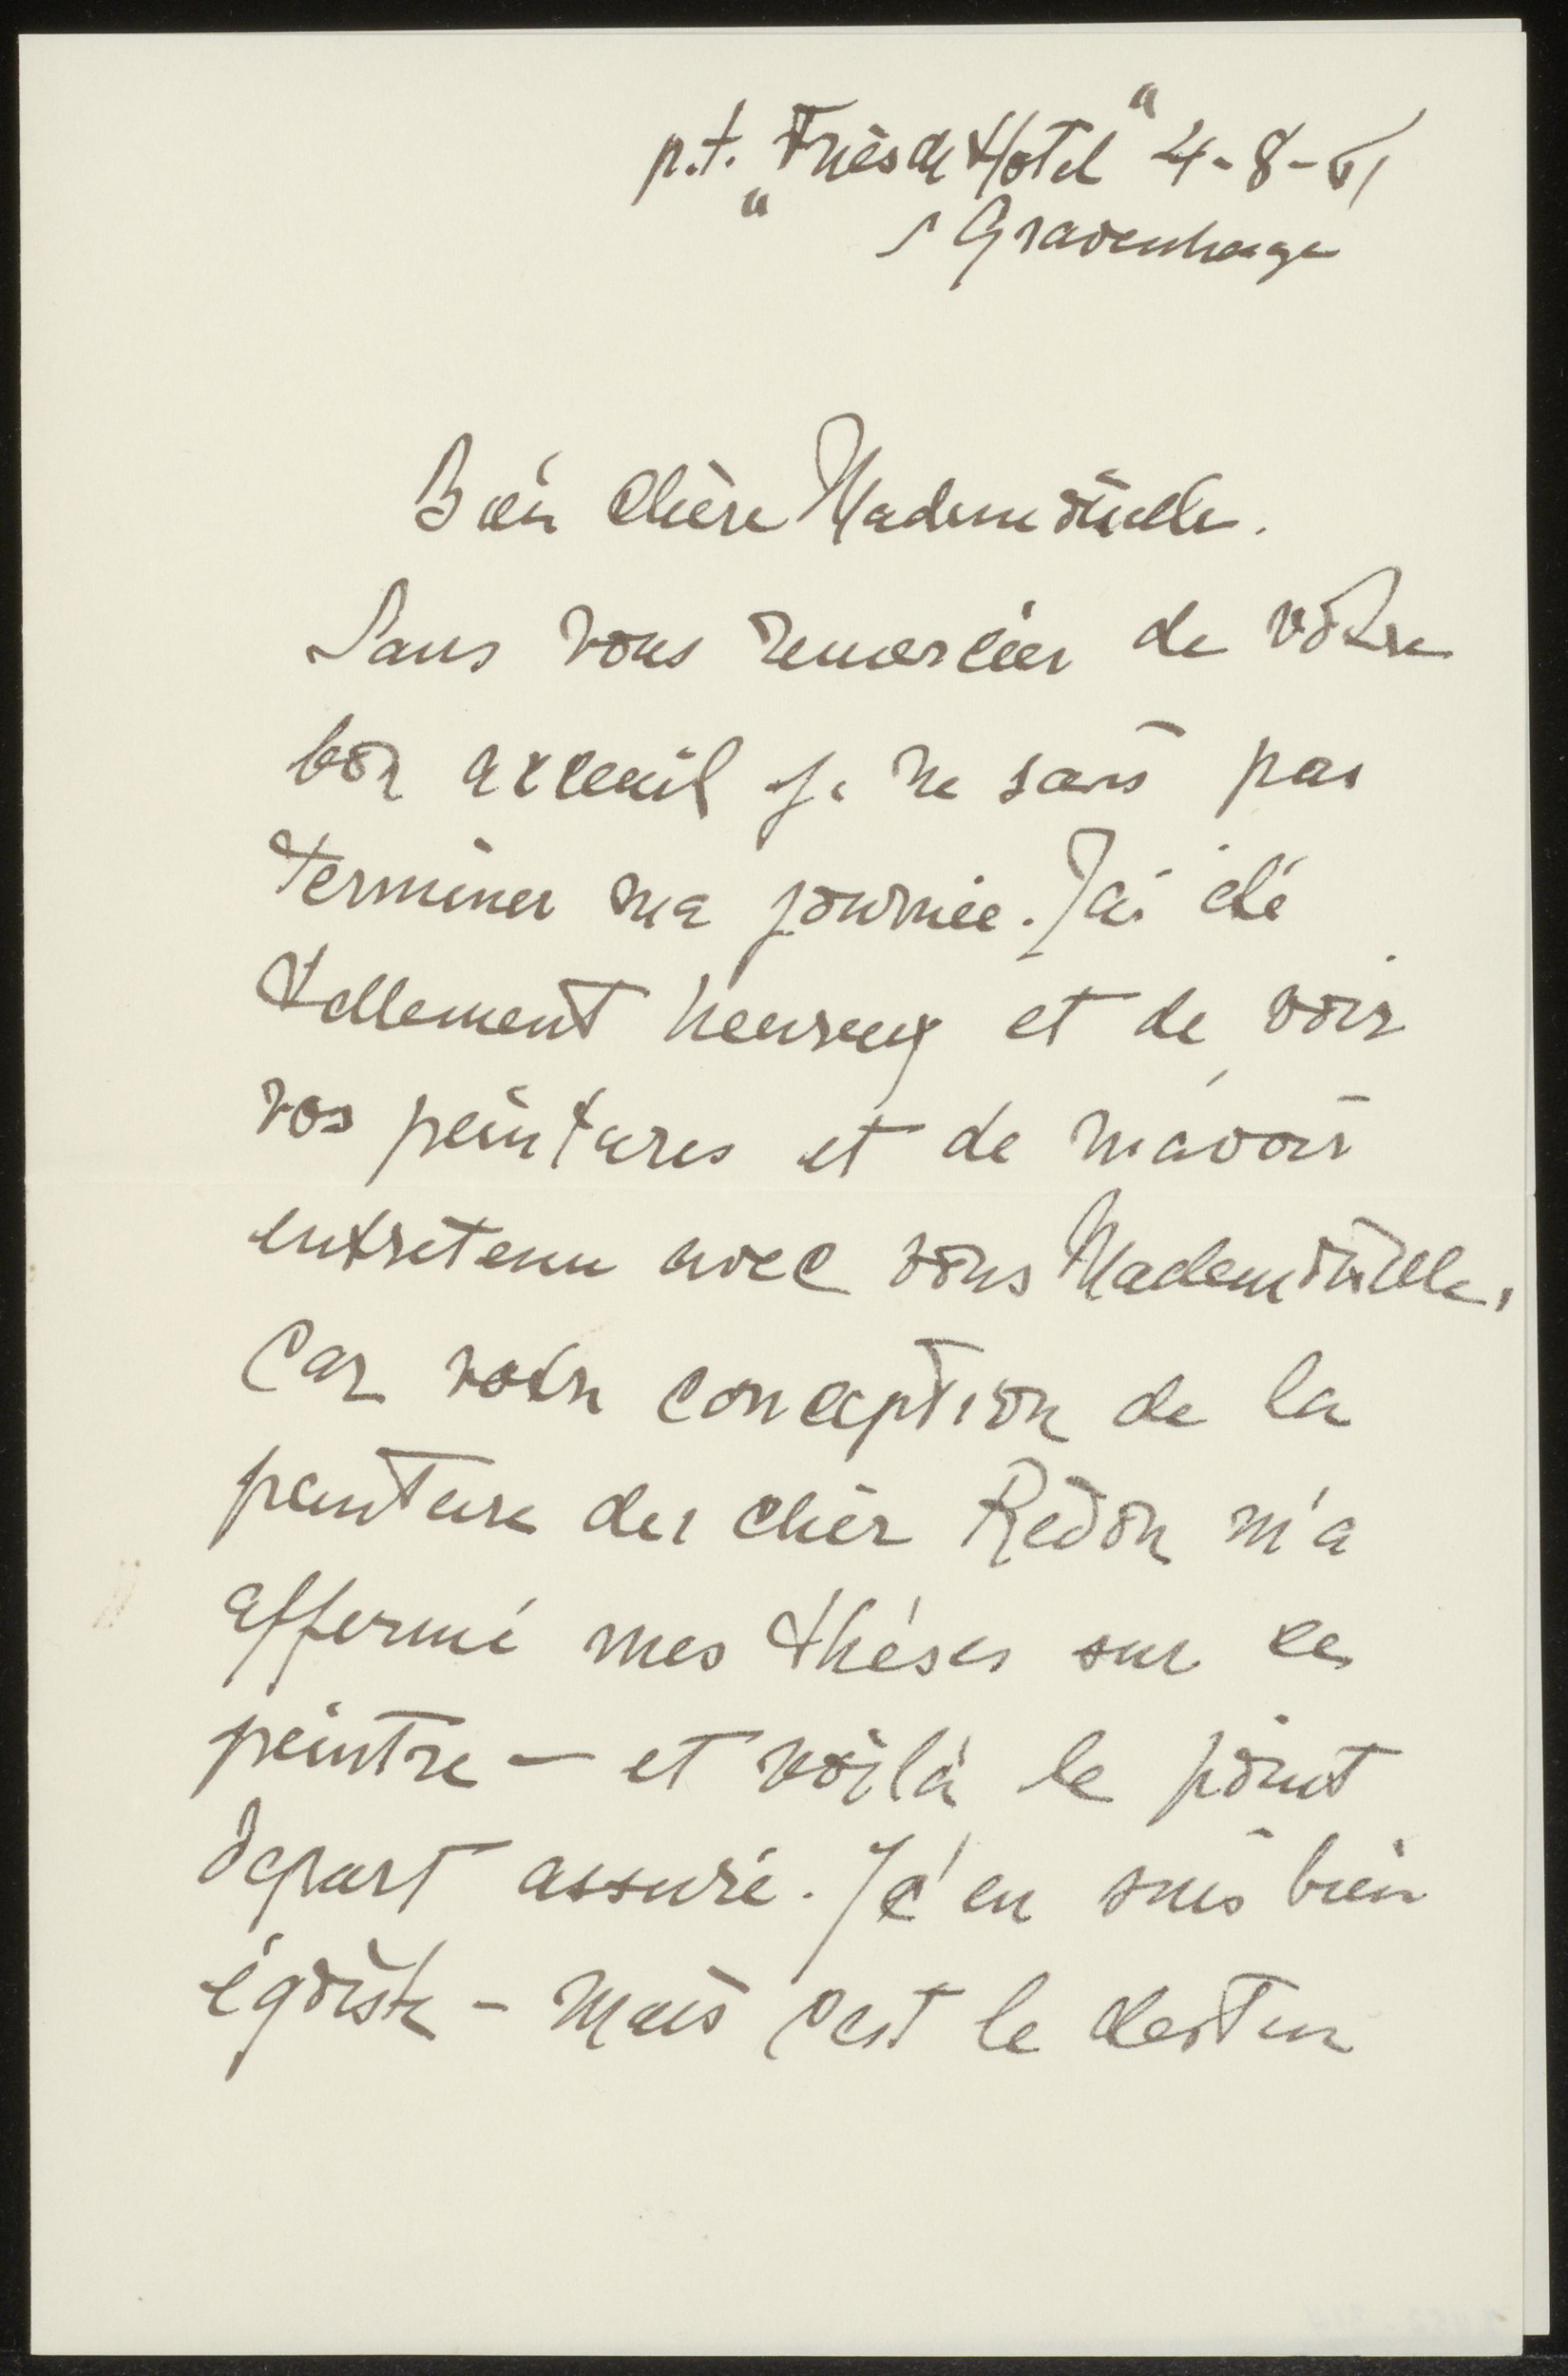 p.t. „Friesch Hotel“ 4-8-51
s Gravenhage
Bien Chère Mademoiselle.
Sans vous remercier de votre
bon acceuil je ne sais pas
terminer ma journée. J'ai été
tellement heureux et de voir
vos peintures et de m'avoir
entretenu avec vous Mademoiselle,
Car votre conception de la
peinture de cher Redon m'a
affermé mes thèses sur ce
peintre — et voilà le point
depart assuré. Je'en suis bien
égoïste - Mais c'est le destin